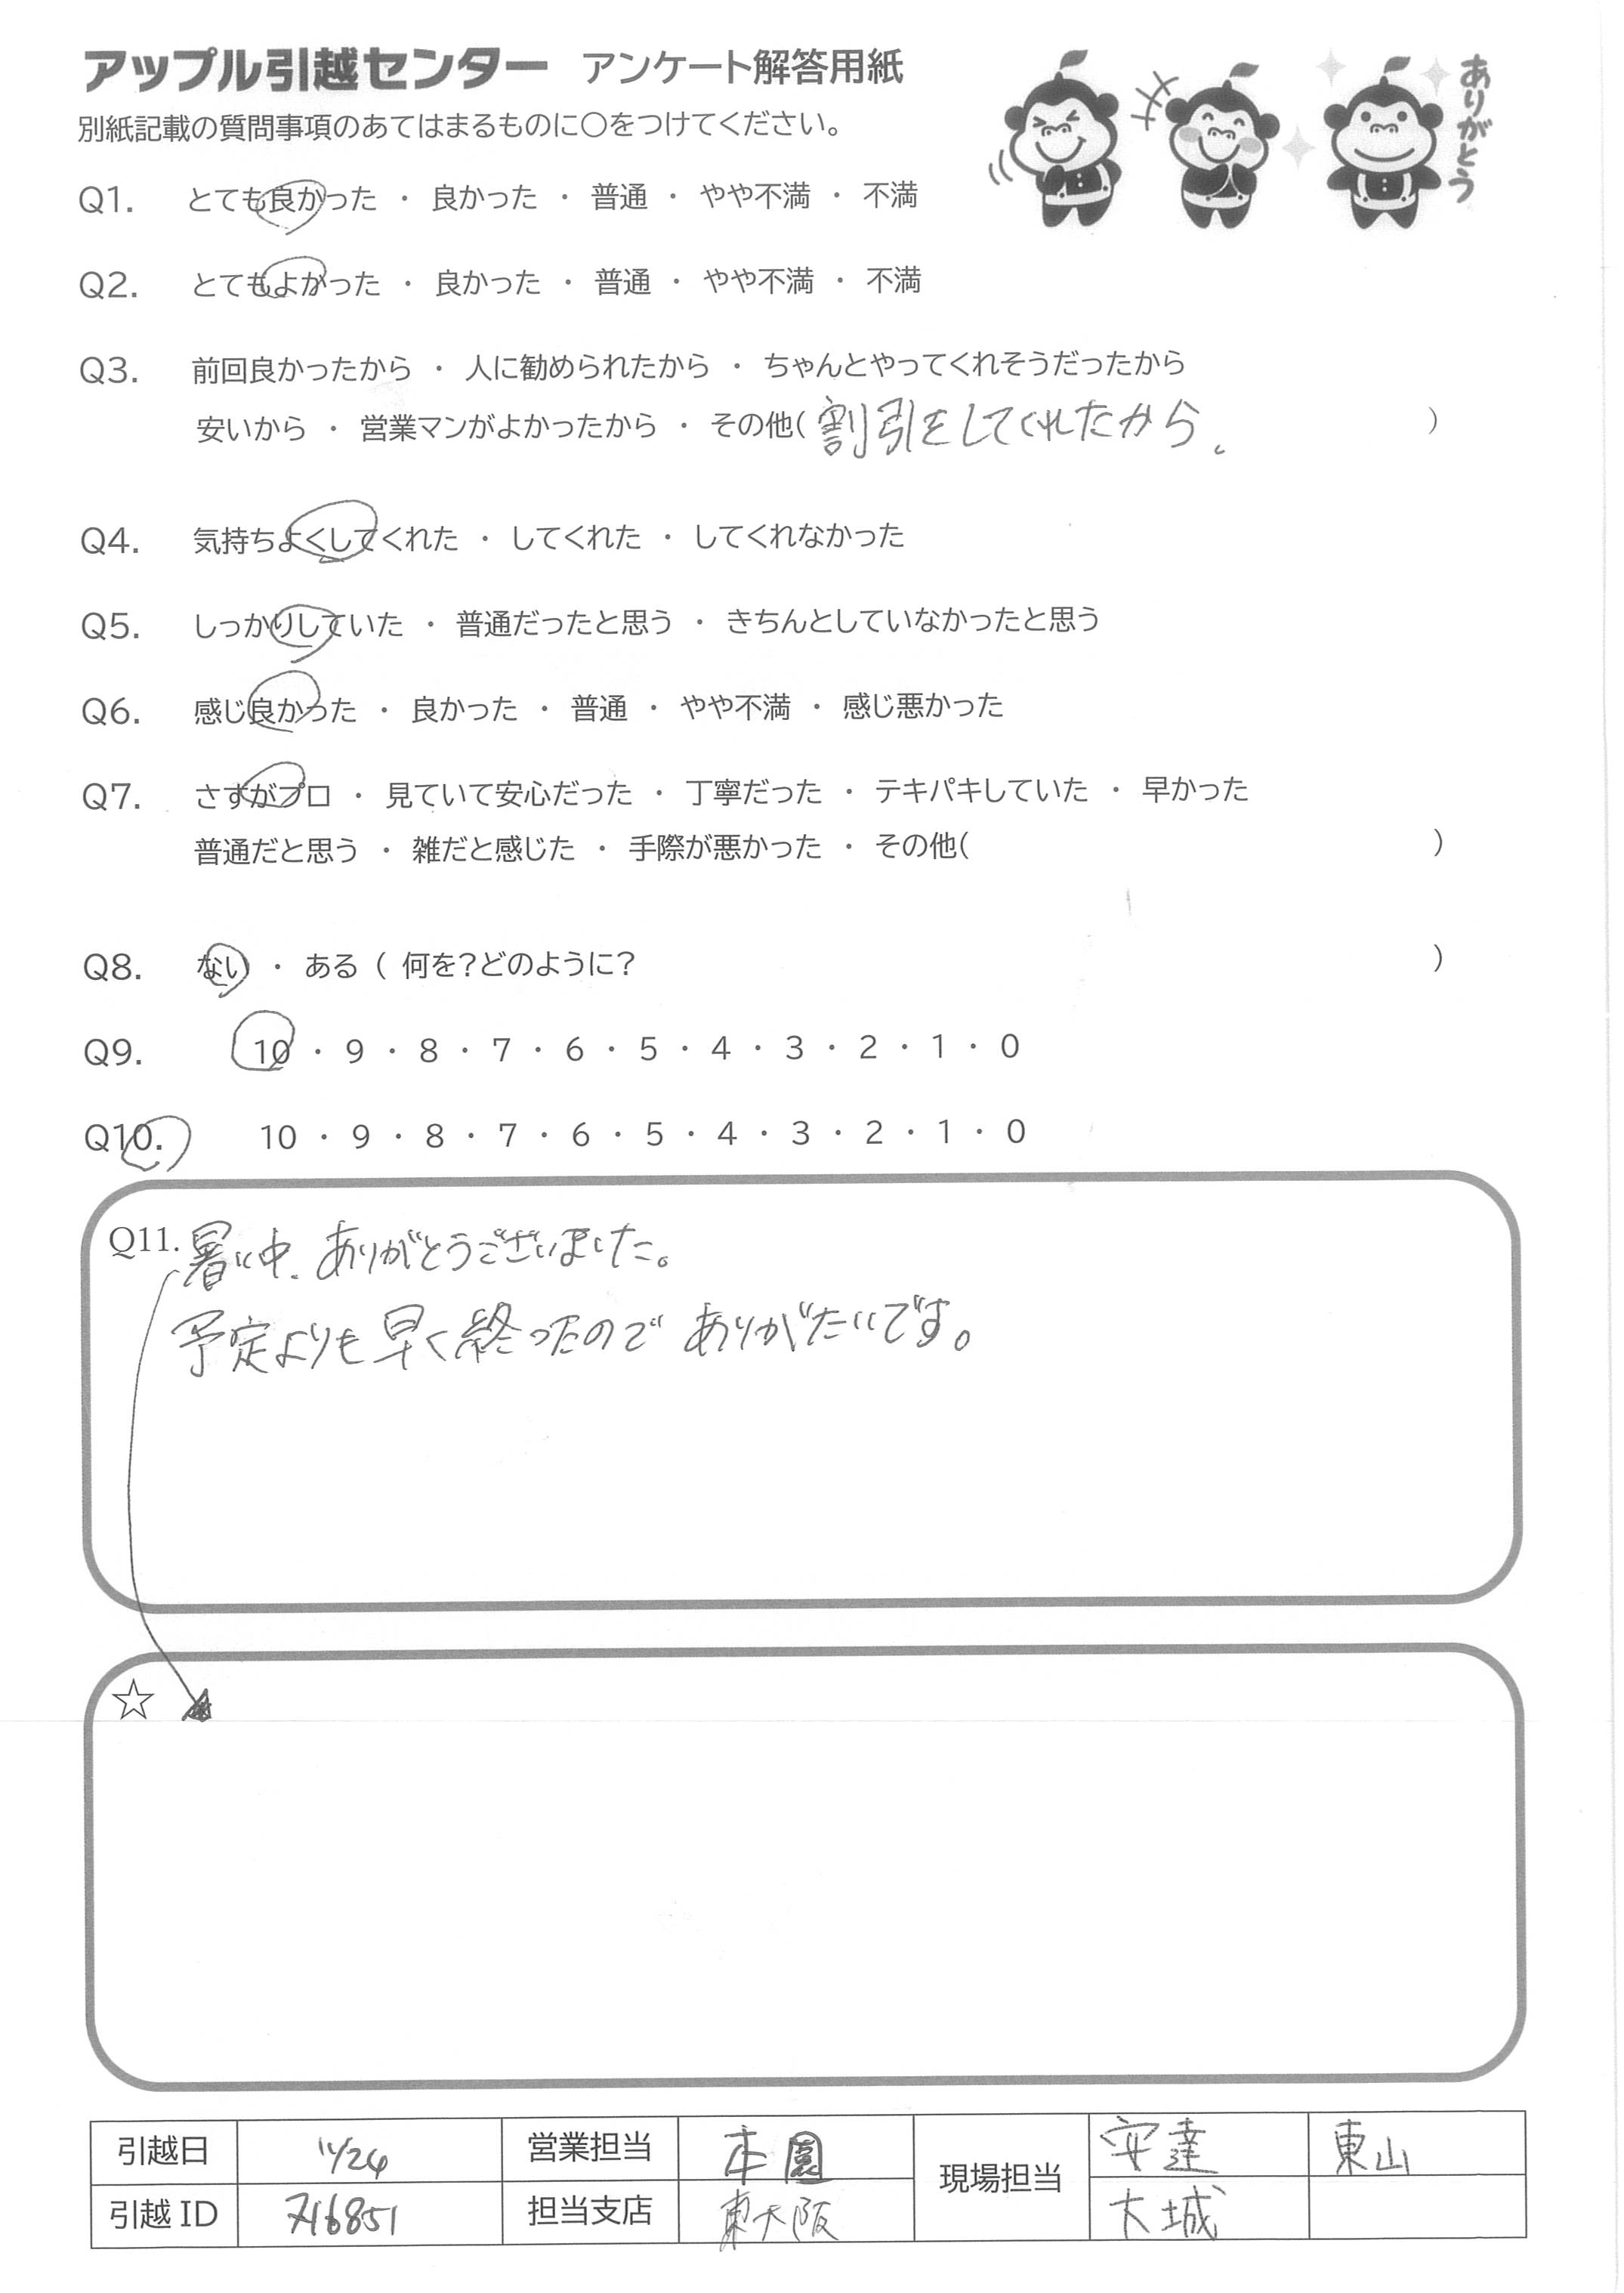 アップル引越センター アンケート解答用紙
ありがとう
別紙記載の質問事項のあてはまるものに○をつけてください。
Q1. とても良かった ・ 良かった ・ 普通 ・ やや不満 ・ 不満
Q2. とてもよかった ・ 良かった ・ 普通 ・ やや不満 ・ 不満
Q3. 前回良かったから ・ 人に勧められたから ・ ちゃんとやってくれそうだったから
安いから ・ 営業マンがよかったから ・ その他( 割引をしてくれたから。 )
Q4. 気持ちよくしてくれた ・ してくれた ・ してくれなかった
Q5. しっかりしていた ・ 普通だったと思う ・ きちんとしていなかったと思う
Q6. 感じ良かった ・ 良かった ・ 普通 ・ やや不満 ・ 感じ悪かった
Q7. さすがプロ ・ 見ていて安心だった ・ 丁寧だった ・ テキパキしていた ・ 早かった
普通だと思う ・ 雑だと感じた ・ 手際が悪かった ・ その他( )
Q8. ない ・ ある ( 何を?どのように? )
Q9. 10 ・ 9 ・ 8 ・ 7 ・ 6 ・ 5 ・ 4 ・ 3 ・ 2 ・ 1 ・ 0
Q10. 10 ・ 9 ・ 8 ・ 7 ・ 6 ・ 5 ・ 4 ・ 3 ・ 2 ・ 1 ・ 0
Q11. 暑い中、ありがとうございました。
予定よりも早く終ったので ありがたいです。
☆
引越日 11/24 営業担当 本園 現場担当 安達 東山
引越ID 716851 担当支店 東大阪 大城